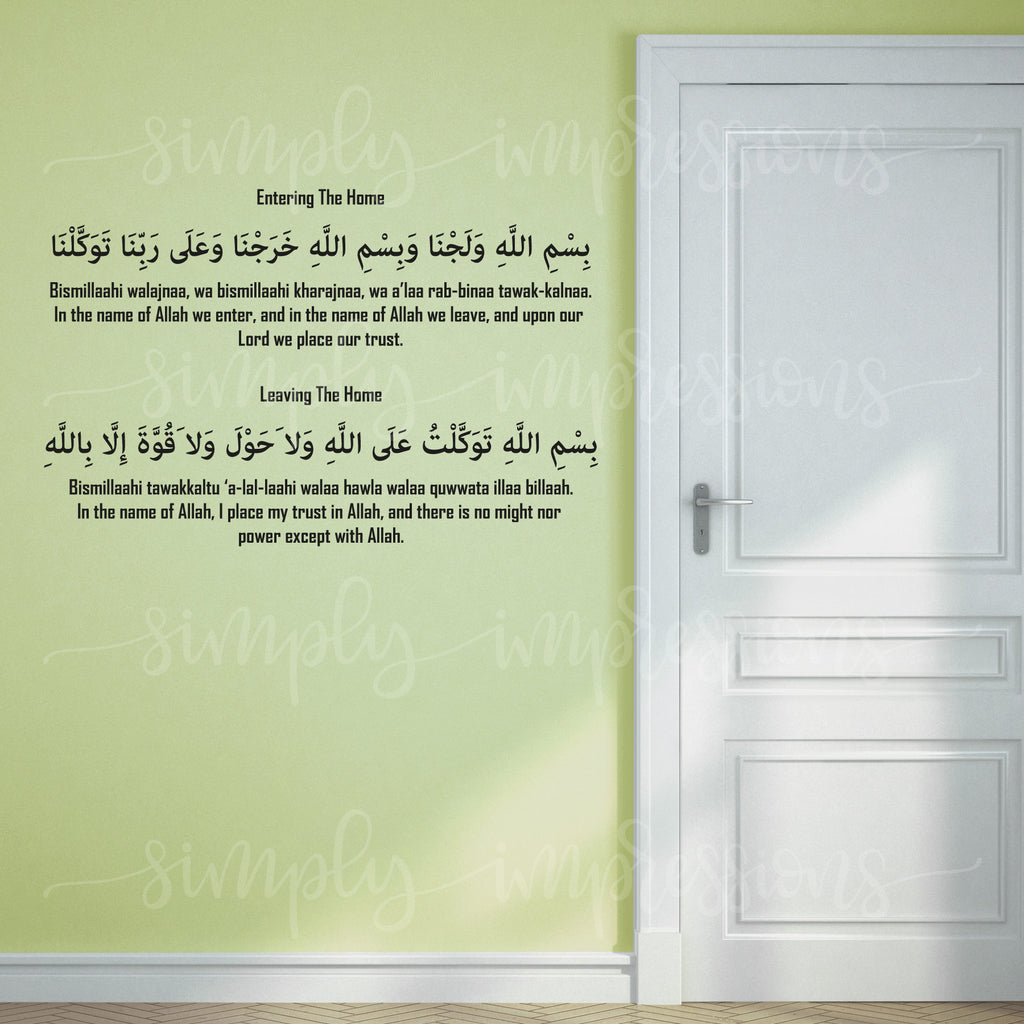 Entering The Home
بِسْمِ اللَّهِ وَلَجْنَا وَبِسْمِ اللَّهِ خَرَجْنَا وَعَلَى رَبِّنَا تَوَكَّلْنَا
Bismillaahi walajnaa, wa bismillaahi kharajnaa, wa a’laa rab-binaa tawak-kalnaa.
In the name of Allah we enter, and in the name of Allah we leave, and upon our
Lord we place our trust.
Leaving The Home
بِسْمِ اللَّهِ تَوَكَّلْتُ عَلَى اللَّهِ وَلا َحَوْلَ وَلا َقُوَّةَ إِلَّا بِاللَّهِ
Bismillaahi tawakkaltu ‘a-lal-laahi walaa hawla walaa quwwata illaa billaah.
In the name of Allah, I place my trust in Allah, and there is no might nor
power except with Allah.
simply impressions
simply impressions
simply impressions
simply impressions